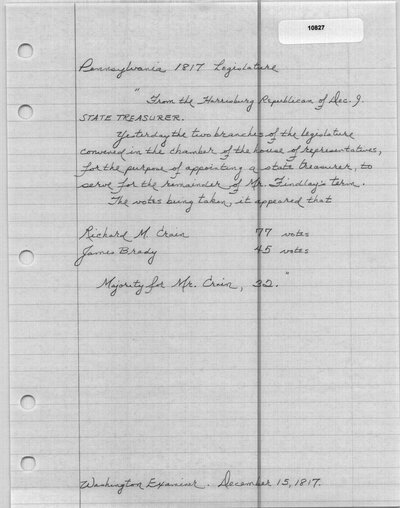 10827
Pennsylvania 1817 Legislature
" From the Harrisburg Republican of Dec. 9.
STATE TREASURER.
Yesterday the two branches of the legislature
convened in the chamber of the house of representatives,
for the purpose of appointing a state treasurer, to
serve for the remainder of Mr. Findlay's term.
The votes being taken, it appeared that
Richard M. Crain 77 votes
James Brady 45 votes
Majority for Mr. Crain, 32."
Washington Examiner. December 15, 1817.